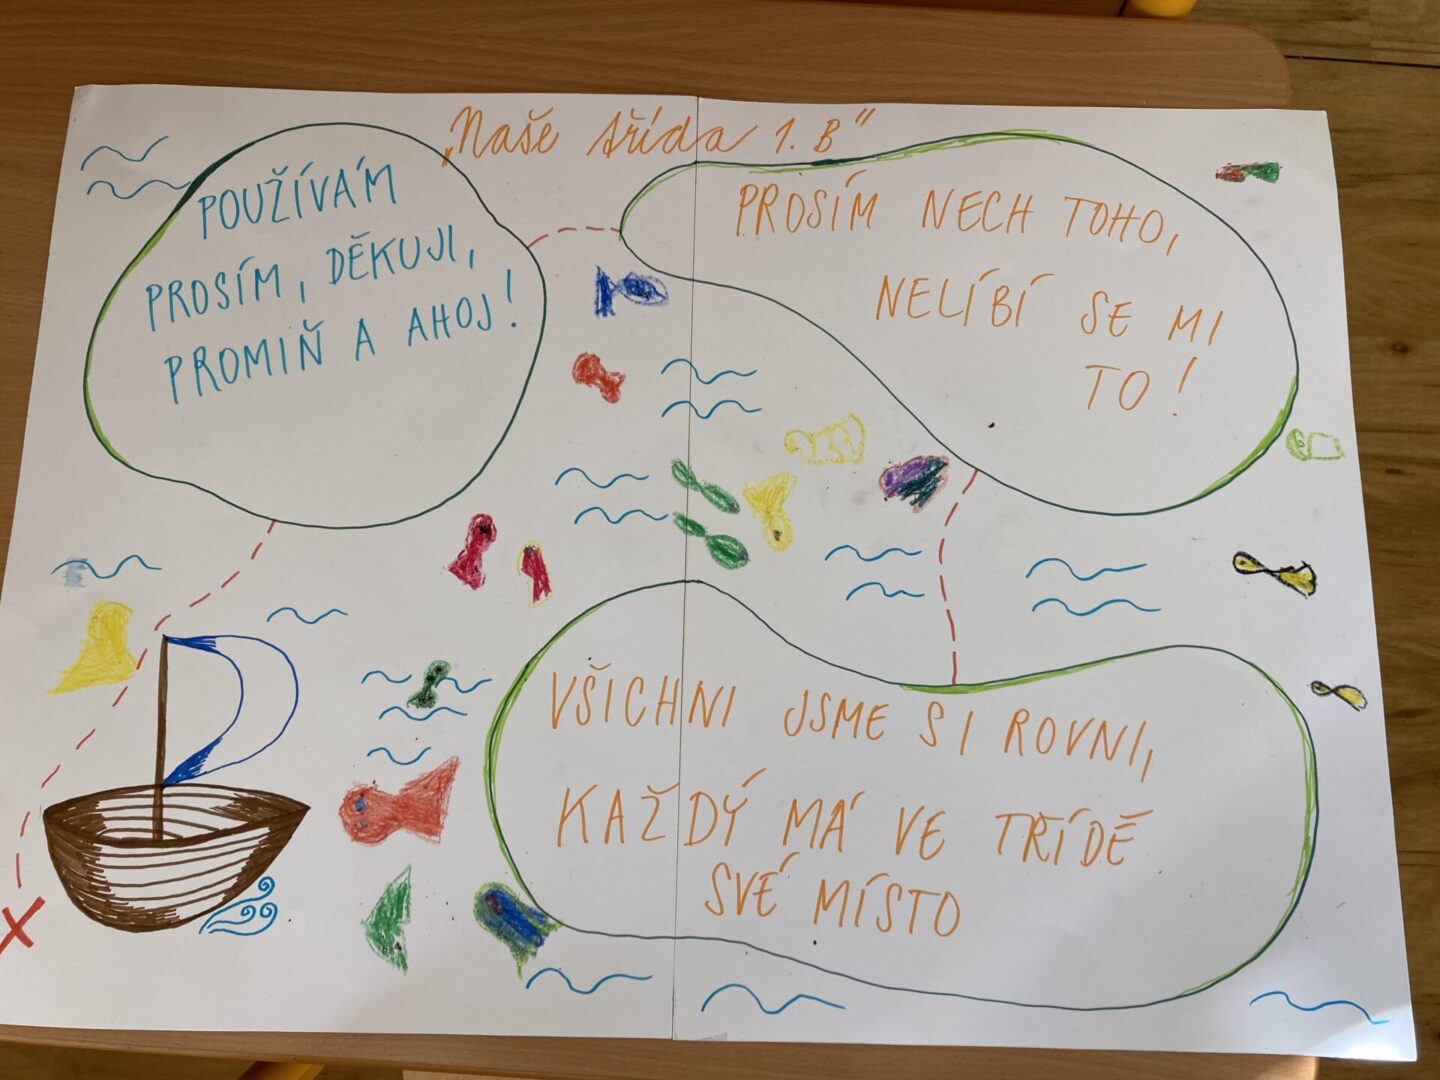 „Naše třída 1. B“
POUŽÍVÁM
PROSÍM, DĚKUJI,
PROMIŇ A AHOJ!
PROSÍM NECH TOHO,
NELÍBÍ SE MI
TO!
VŠICHNI JSME SI ROVNI,
KAŽDÝ MÁ VE TŘÍDĚ
SVÉ MÍSTO